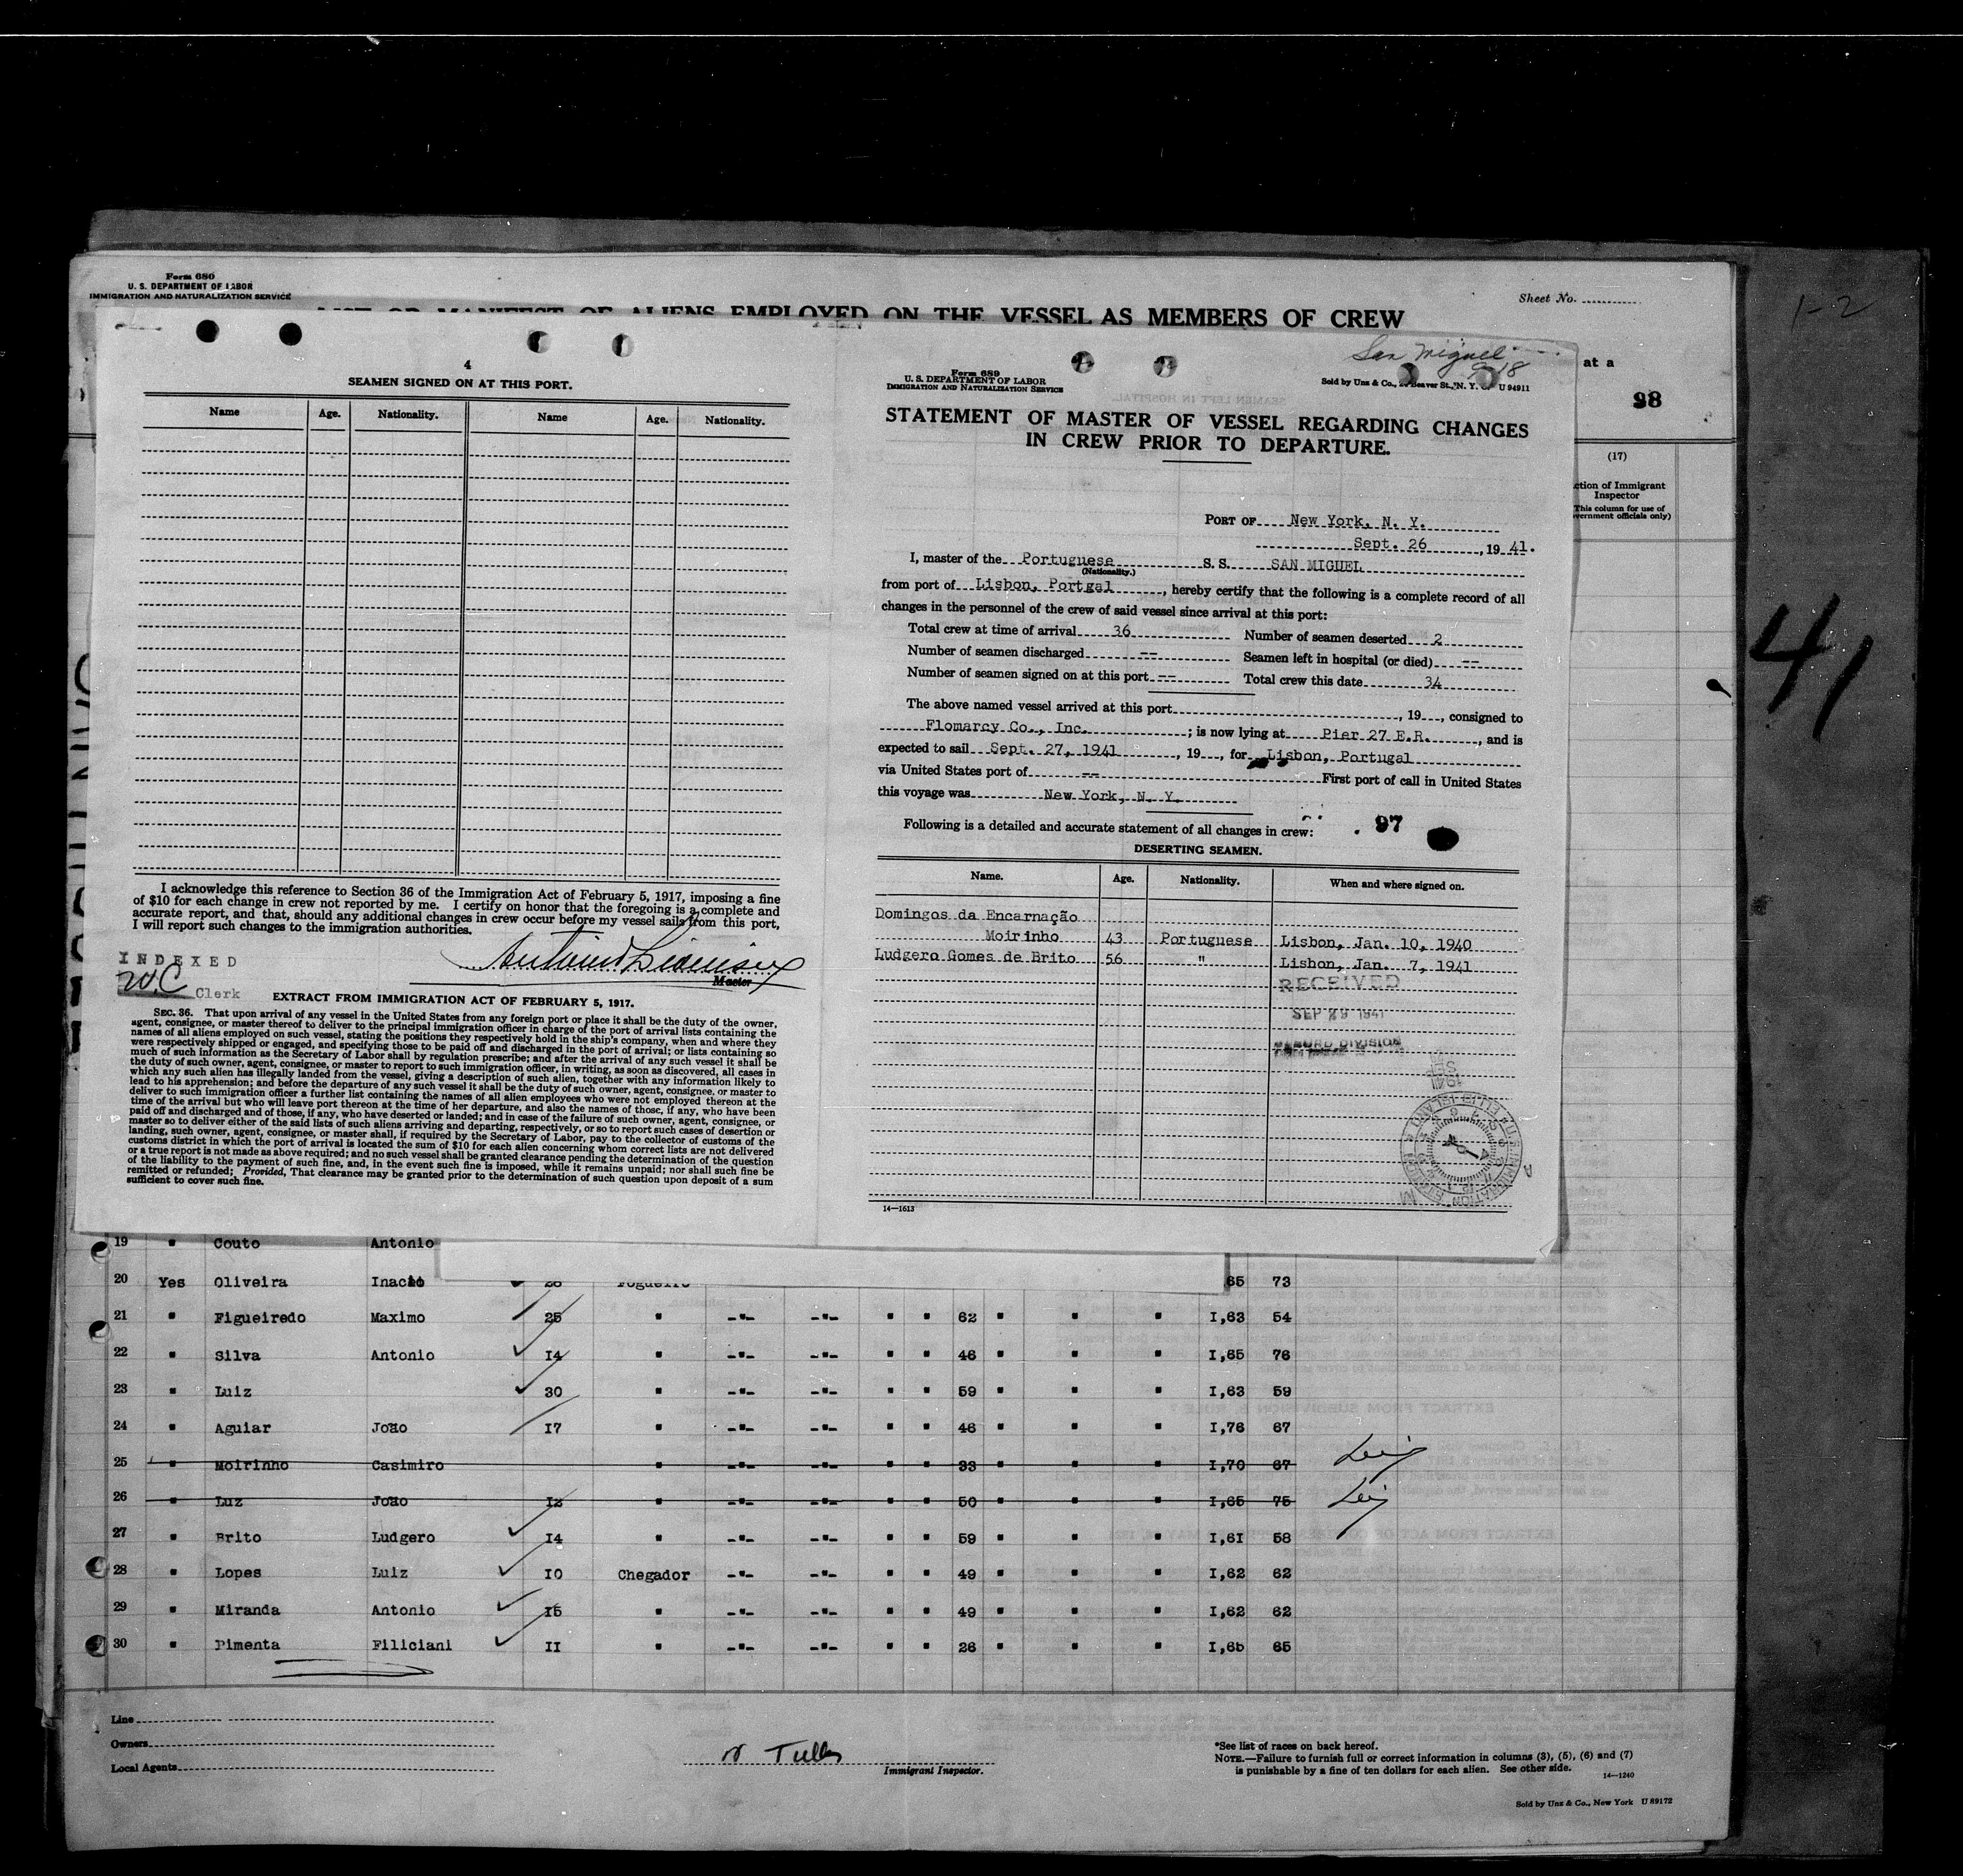 Form 680
U. S. DEPARTMENT OF LABOR
IMMIGRATION AND NATURALIZATION SERVICE
Sheet No.
LIST OR MANIFEST OF ALIENS EMPLOYED ON THE VESSEL AS MEMBERS OF CREW
1-2
at a
98
(17)
ction of Immigrant
Inspector
This column for use of
vernment officials only)
41
4
SEAMEN SIGNED ON AT THIS PORT.
Name Age. Nationality. Name Age. Nationality.
I acknowledge this reference to Section 36 of the Immigration Act of February 5, 1917, imposing a fine
of $10 for each change in crew not reported by me. I certify on honor that the foregoing is a complete and
accurate report, and that, should any additional changes in crew occur before my vessel sails from this port,
I will report such changes to the immigration authorities.
INDEXED
W.C Clerk
Master
EXTRACT FROM IMMIGRATION ACT OF FEBRUARY 5, 1917.
SEC. 36. That upon arrival of any vessel in the United States from any foreign port or place it shall be the duty of the owner,
agent, consignee, or master thereof to deliver to the principal immigration officer in charge of the port of arrival lists containing the
names of all aliens employed on such vessel, stating the positions they respectively hold in the ship's company, when and where they
were respectively shipped or engaged, and specifying those to be paid off and discharged in the port of arrival; or lists containing so
much of such information as the Secretary of Labor shall by regulation prescribe; and after the arrival of any such vessel it shall be
the duty of such owner, agent, consignee, or master to report to such immigration officer, in writing, as soon as discovered, all cases in
which any such alien has illegally landed from the vessel, giving a description of such alien, together with any information likely to
lead to his apprehension; and before the departure of any such vessel it shall be the duty of such owner, agent, consignee, or master to
deliver to such immigration officer a further list containing the names of all alien employees who were not employed thereon at the
time of the arrival but who will leave port thereon at the time of her departure, and also the names of those, if any, who have been
paid off and discharged and of those, if any, who have deserted or landed; and in case of the failure of such owner, agent, consignee, or
master so to deliver either of the said lists of such aliens arriving and departing, respectively, or so to report such cases of desertion or
landing, such owner, agent, consignee, or master shall, if required by the Secretary of Labor, pay to the collector of customs of the
customs district in which the port of arrival is located the sum of $10 for each alien concerning whom correct lists are not delivered
or a true report is not made as above required; and no such vessel shall be granted clearance pending the determination of the question
of the liability to the payment of such fine, and, in the event such fine is imposed, while it remains unpaid; nor shall such fine be
remitted or refunded; Provided, That clearance may be granted prior to the determination of such question upon deposit of a sum
sufficient to cover such fine.
San Miguel
9-18
Form 689
U. S. DEPARTMENT OF LABOR
IMMIGRATION AND NATURALIZATION SERVICE
Sold by Unz & Co., Beaver St., N. Y. U 94911
STATEMENT OF MASTER OF VESSEL REGARDING CHANGES
IN CREW PRIOR TO DEPARTURE.
PORT OF New York, N. Y.
Sept. 26, 1941.
I, master of the Portuguese S. S. SAN MIGUEL
(Nationality.)
from port of Lisbon, Portgal, hereby certify that the following is a complete record of all
changes in the personnel of the crew of said vessel since arrival at this port:
Total crew at time of arrival 36 Number of seamen deserted 2
Number of seamen discharged -- Seamen left in hospital (or died) --
Number of seamen signed on at this port -- Total crew this date 34
The above named vessel arrived at this port , 19 , consigned to
Flomarcy Co., Inc. ; is now lying at Pier 27 E.R. , and is
expected to sail Sept. 27, 1941 , 19 , for Lisbon, Portugal
via United States port of -- First port of call in United States
this voyage was New York, N. Y.
Following is a detailed and accurate statement of all changes in crew: 97
DESERTING SEAMEN.
Name. Age. Nationality. When and where signed on.
Domingos da Encarnação
Moirinho 43 Portuguese Lisbon, Jan. 10, 1940
Ludgero Gomes de Brito 56 " Lisbon, Jan. 7, 1941
RECEIVED
SEP 29 1941
RECORD DIVISION
14—1613
19 " Couto Antonio
20 Yes Oliveira Inacio 28 Fogueiro 65 73
21 " Figueiredo Maximo 25 " -"- -"- " " 62 " " " I,63 54
22 " Silva Antonio I4 " -"- -"- " " 46 " " " I,65 76
23 " Luiz 30 " -"- -"- " " 59 " " " I,63 59
24 " Aguiar João I7 " -"- -"- " " 46 " " " I,76 67
25 " Moirinho Casimiro " -"- -"- " " 33 " " " I,70 67
26 " Luz João I2 " -"- -"- " " 50 " " " I,65 75
27 " Brito Ludgero I4 " -"- -"- " " 59 " " " I,6I 58
28 " Lopes Luiz I0 Chegador -"- -"- " " 49 " " " I,62 62
29 " Miranda Antonio I5 " -"- -"- " " 49 " " " I,62 62
30 " Pimenta Filiciani II " -"- -"- " " 26 " " " I,65 65
Line
Owners
Local Agents
Immigrant Inspector.
*See list of races on back hereof.
NOTE.—Failure to furnish full or correct information in columns (3), (5), (6) and (7)
is punishable by a fine of ten dollars for each alien. See other side.
14—1240
Sold by Unz & Co., New York U 89172